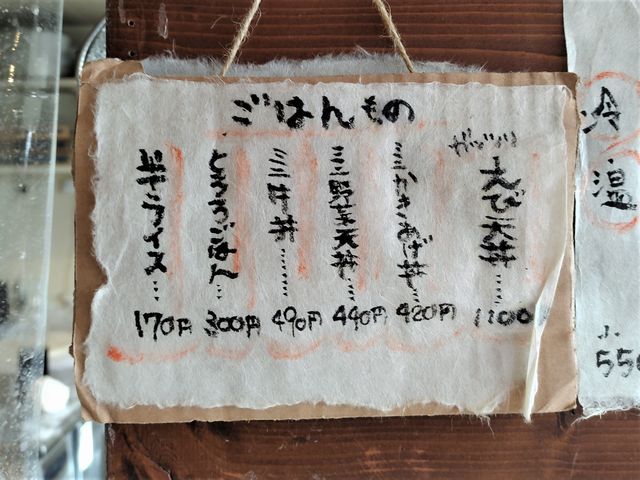 ごはんもの
ガッツリ
えび天丼……
1100
ミニかきあげ丼……
420円
ミニ野菜天丼……
440円
ミニ牛丼……
490円
とろろごはん
300円
半ライス…
170円
冷
温
小
550